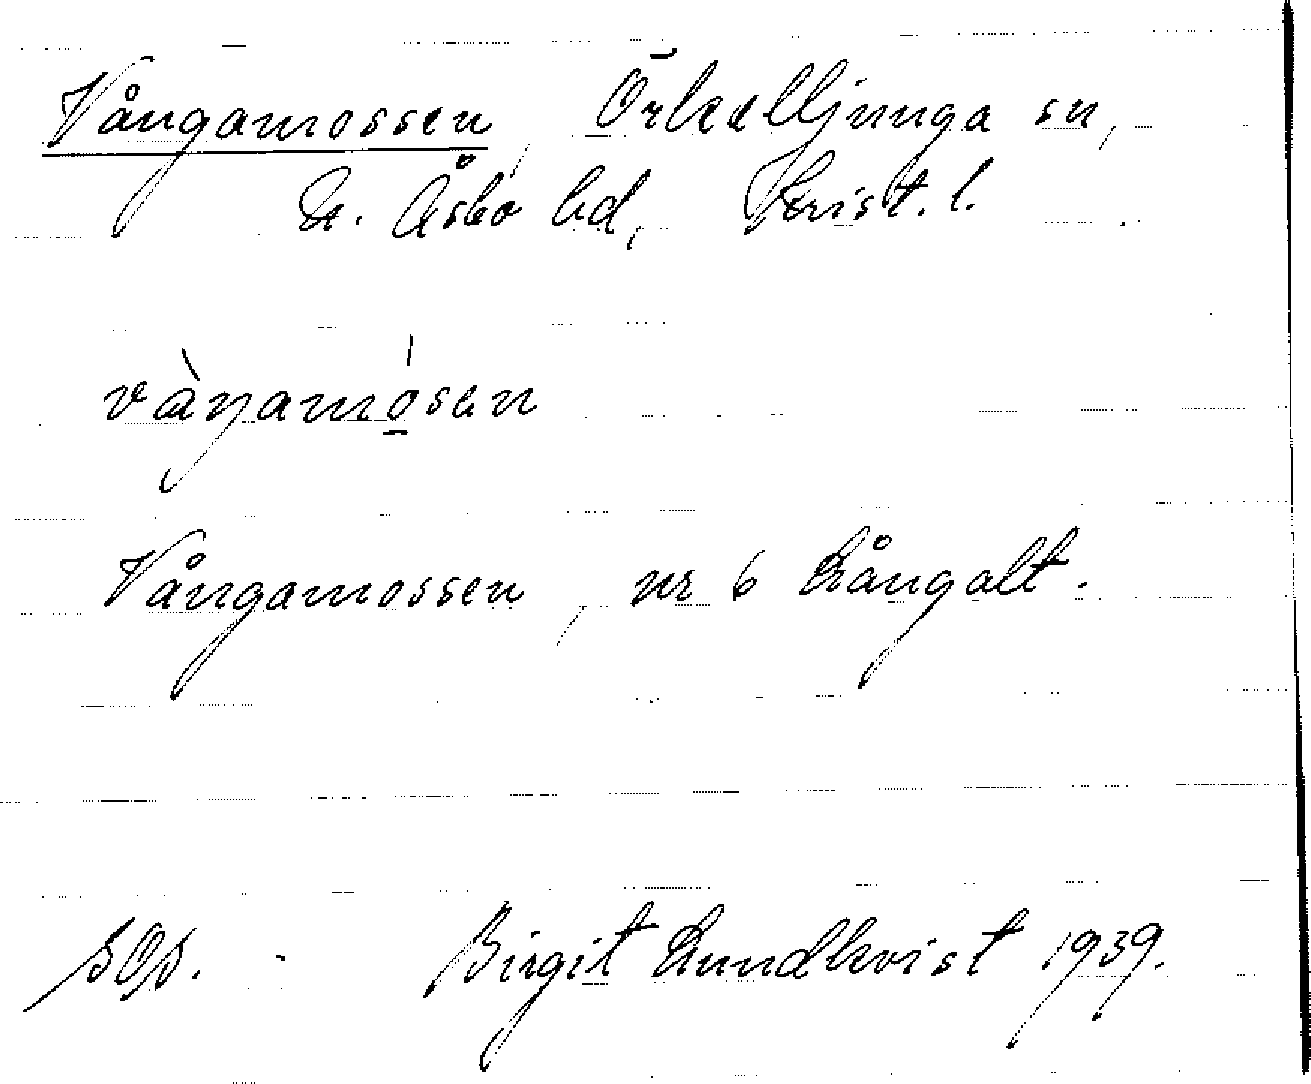 Vångamossen, Örkelljunga sn,
N. Åsbo hd, Krist. l.
vàŋamósen
Vångamossen, nr 6 Långalt.
Birgit Lundkvist 1939.